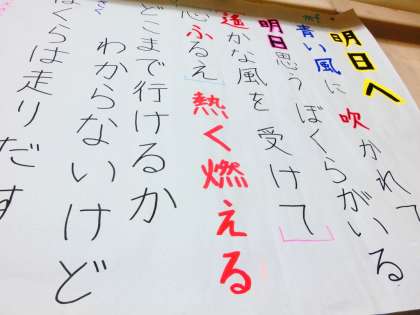 明日へ
青い風に 吹かれて
明日思う ぼくらがいる
遙かな風を 受けて
ふるえ 熱く燃える
どこまで行けるか
わからないけど
ぼくらは走りだす